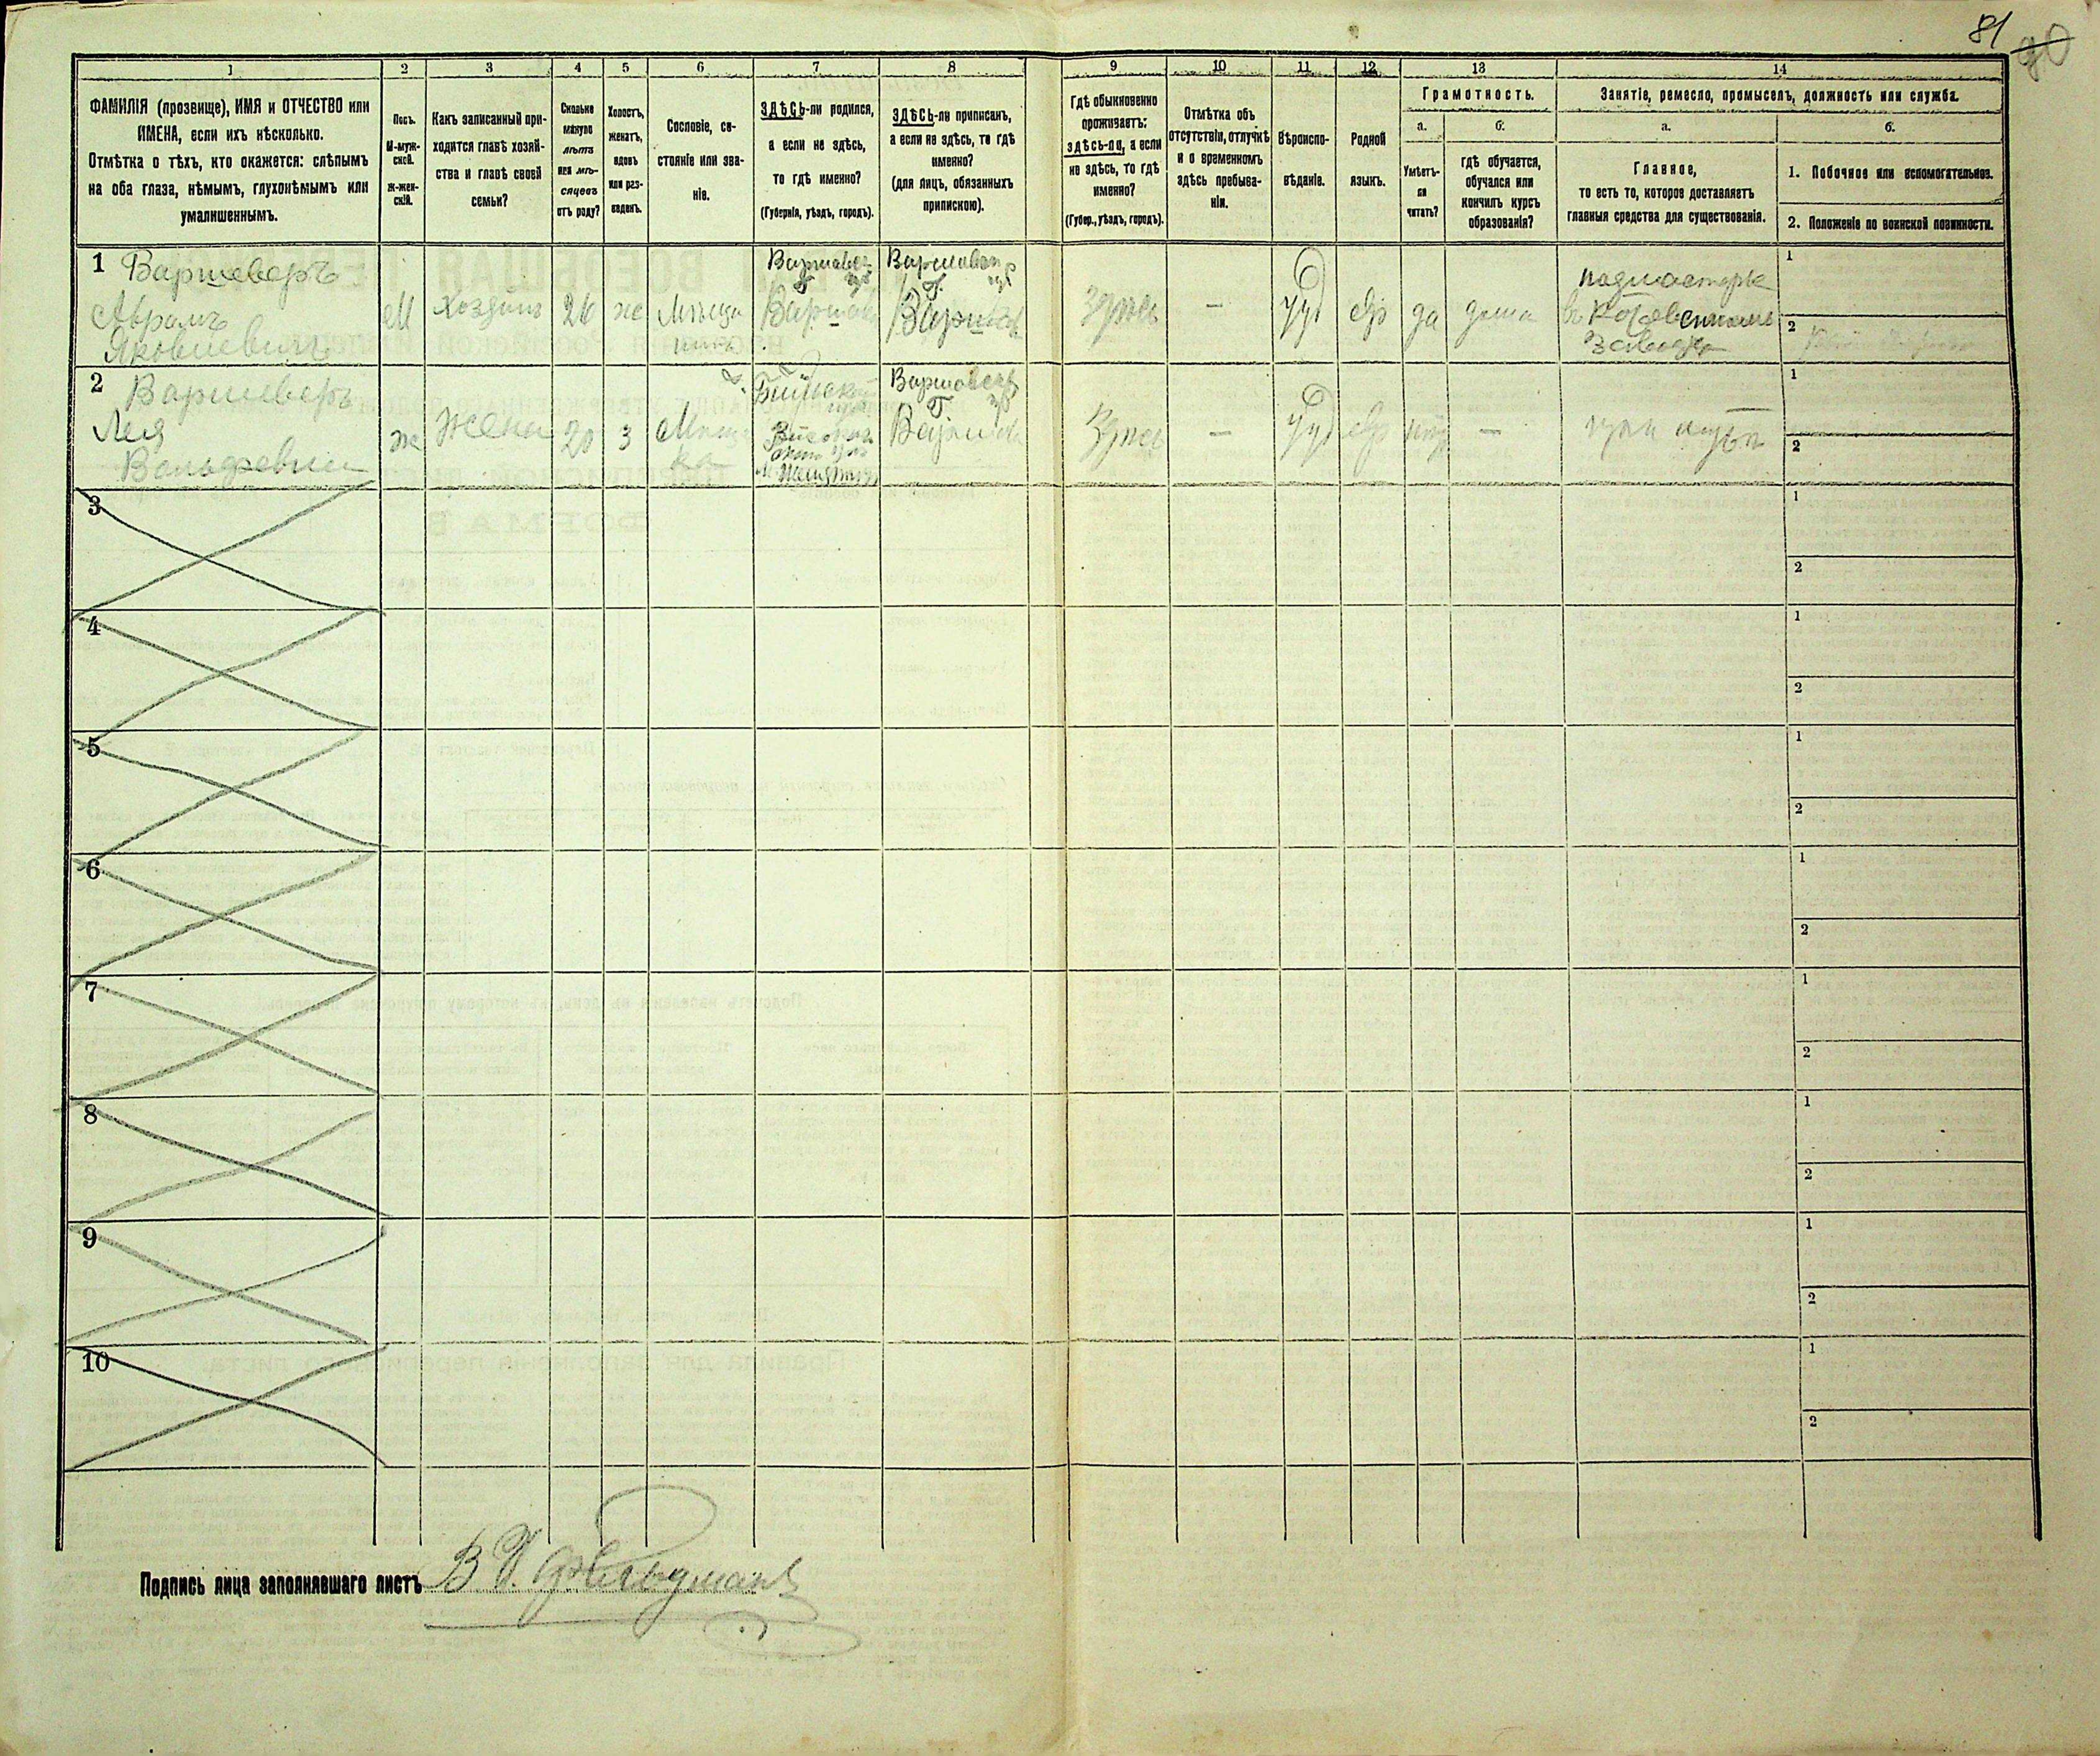 81 90
1 2 3 4 5 6 7 8 9 10 11 12 13 14
ФАМИЛІЯ (прозвище), ИМЯ и ОТЧЕСТВО или
ИМЕНА, если ихъ нѣсколько.
Отмѣтка о тѣхъ, кто окажется: слѣпымъ
на оба глаза, нѣмымъ, глухонѣмымъ или
умалишеннымъ.
Полъ.
М-муж-
ской.
Ж-жен-
скій.
Какъ записанный при-
ходится главѣ хозяй-
ства и главѣ своей
семьи?
Сколько
минуло
лѣтъ
или мѣ-
сяцевъ
отъ роду?
Холостъ,
женатъ,
вдовъ
или раз-
веденъ.
Сословіе, со-
стояніе или зва-
ніе.
ЗДѢСЬ-ли родился,
а если не здѣсь,
то гдѣ именно?
(Губернія, уѣздъ, городъ).
ЗДѢСЬ-ли приписанъ,
а если не здѣсь, то гдѣ
именно?
(для лицъ, обязанныхъ
припискою).
Гдѣ обыкновенно
проживаетъ:
здѣсь-ли, а если
не здѣсь, то гдѣ
именно?
(Губер., уѣздъ, городъ).
Отмѣтка объ
отсутствіи, отлучкѣ
и о временномъ
здѣсь пребыва-
ніи.
Вѣроиспо-
вѣданіе.
Родной
языкъ.
Грамотность.
а.
Умѣетъ-
ли
читать?
б.
гдѣ обучается,
обучался или
кончилъ курсъ
образованія?
Занятіе, ремесло, промыселъ, должность или служба.
а.
Главное,
то есть то, которое доставляетъ
главныя средства для существованія.
б.
1. Побочное или вспомогательное.
2. Положеніе по воинской повинности.
1 Варшеверъ
Абрамъ
Яковлевичъ
М
Хозяинъ
26
ж
Мѣща
нинъ
Варшавск
губ
Варшава
Варшавск
губ
г. Варшава
Здѣсь
—
Іуд
евр
да
дома
подмастерье
въ Котельномъ
Заводѣ
1
2
2 Варшеверъ
Лея
Вольфовна
ж
Жена
20
3
Мѣщан
ка
Варшавск
губ
Г. Варшава
Здѣсь
—
Іуд
евр
нѣт
—
при мужѣ
1
2
3
1
2
4
1
2
5
1
2
6
1
2
7
1
2
8
1
2
9
1
2
10
1
2
Подпись лица заполнявшаго листъ В Я. Фельдманъ